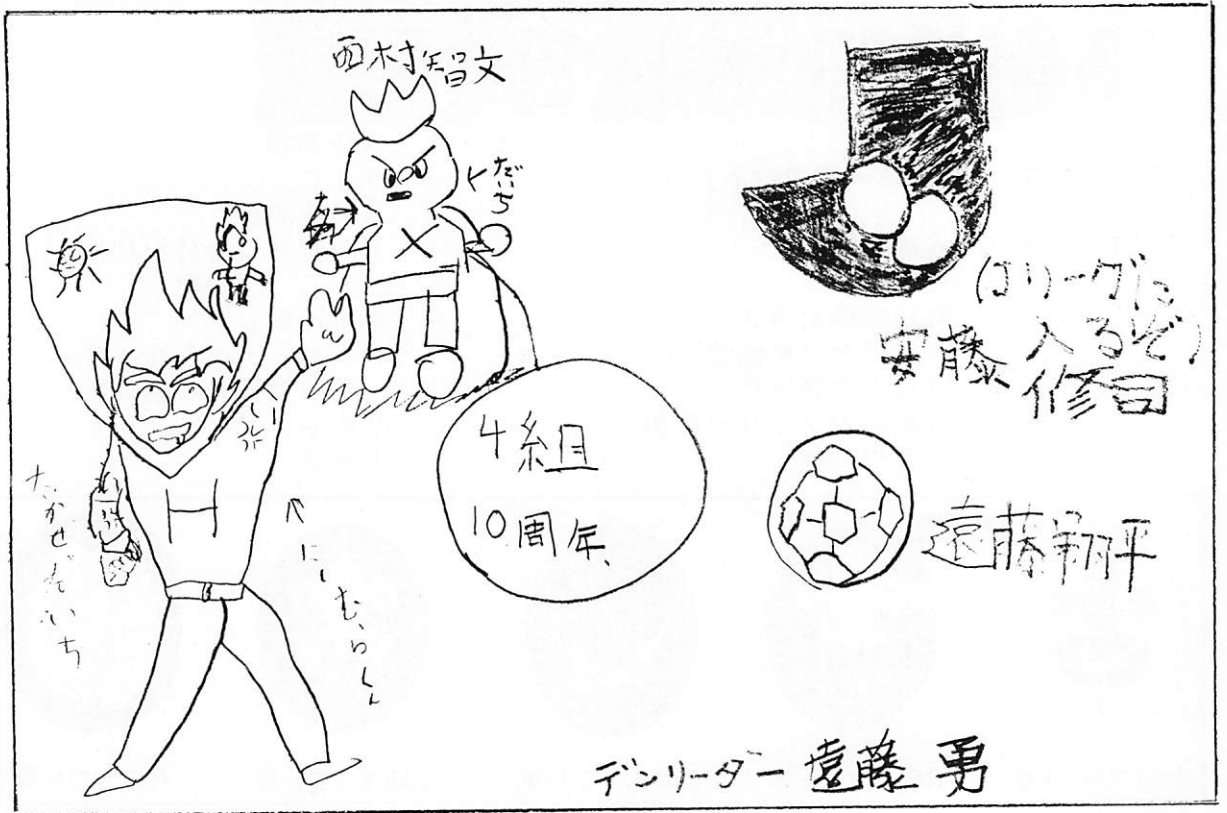 西村智文
だいち
4組
10周年、
(Jリーグに
入るぞ)
安藤修司
遠藤翔平
たかせだいち
にしむらくん
H
デンリーダー 遠藤 勇